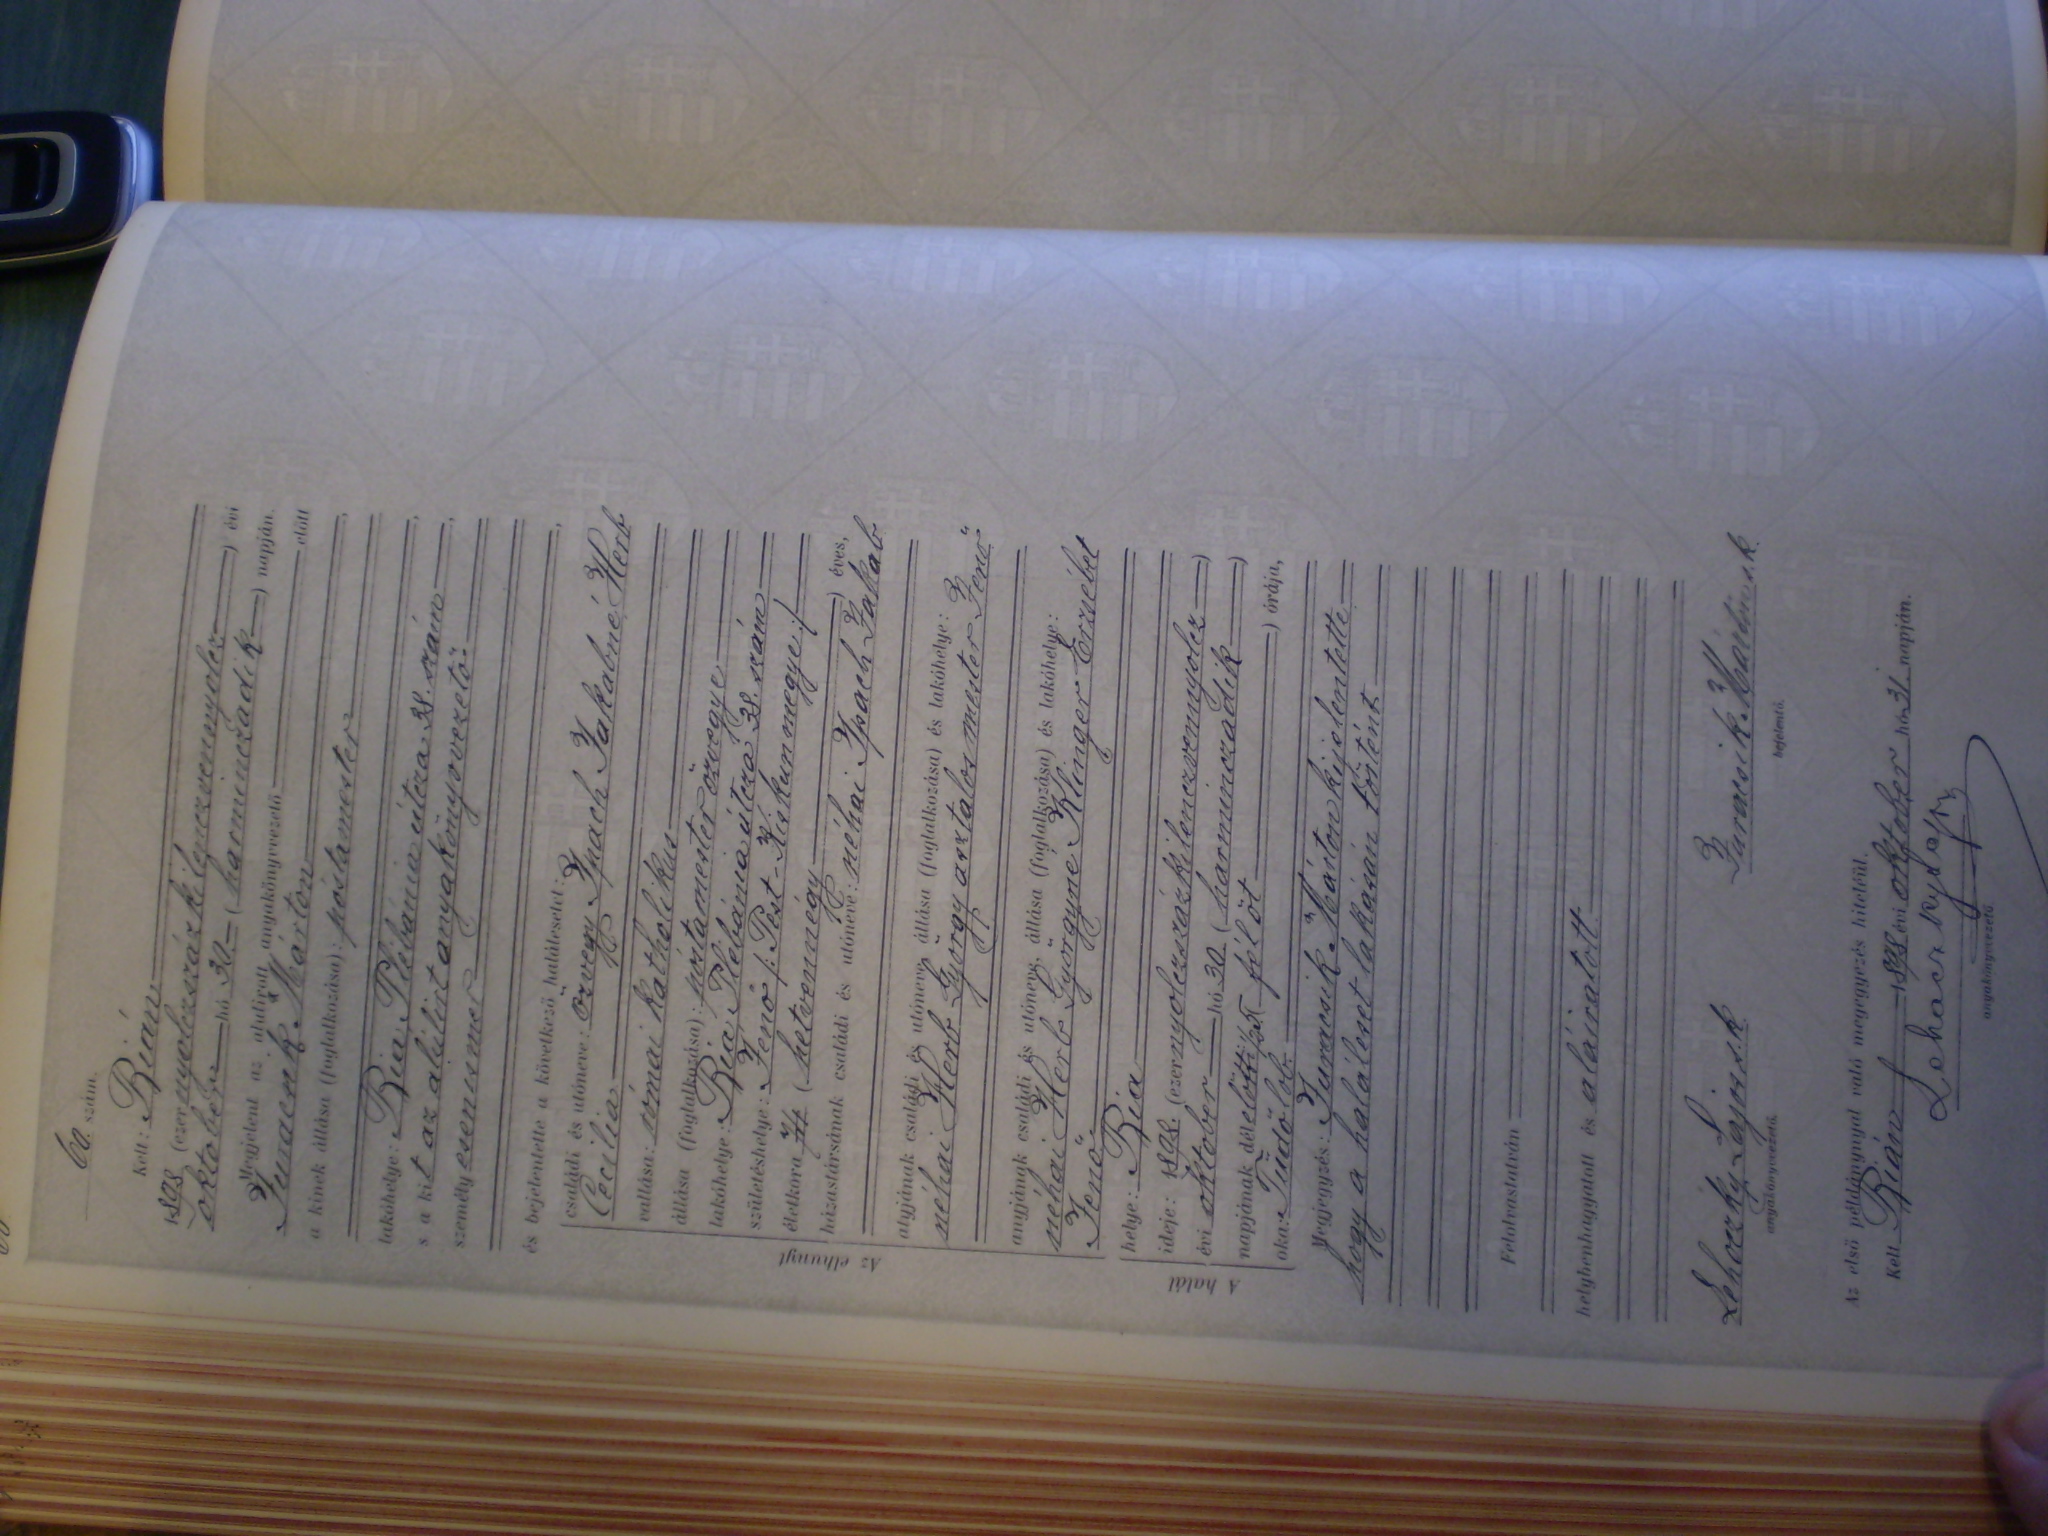 60. szám.
Kelt: Bián
1898 (ezernyolczszázkilenczvennyolcz) évi
október hó 30 (harminczadik) napján.
Megjelent az alulirott anyakönyvvezető előtt
Furacsik Márton
a kinek állása (foglalkozása): póstamester
lakóhelye: Bia Plébánia útcza 38. szám
s a kit az alúlírt anyakönyvvezető
személyesen ismer
és bejelentette a következő halálesetet:
Az elhunyt
családi és utóneve: özvegy Ipach Jakabné Herb
Cecilia
vallása: római katholikus
állása (foglalkozása): póstamester özvegye
lakóhelye: Bia Plébánia útcza 38. szám
születéshelye: Jenő /: Pest-Kiskun megye :/
életkora 74 (hetvennégy) éves,
házastársának családi és utóneve: néhai Ipach Jakab
atyjának családi és utóneve, állása (foglalkozása) és lakóhelye:
néhai Herb György asztalosmester Jenő
anyjának családi és utóneve, állása (foglalkozása) és lakóhelye:
néhai Herb Györgyné Klinger Erzsébet
Jenő
A halál
helye: Bia
ideje: 1898 (ezernyolczszázkilenczvennyolcz)
évi október hó 30 (harminczadik)
napjának délelőtti fölöt ) órája,
oka: Tüdőlob
Megjegyzés: Furacsik Márton kijelentette
hogy a haláleset lakásán történt
Felolvastatván
helybenhagyatott és aláiratott.
Lehoczky Lajos s.k. Furacsik Márton s.k.
anyakönyvvezető. bejelentő.
Az első példánynyal való megegyzés hiteléül.
Kelt Bián 1898 évi október hó 31. napján.
Lehoczky Lajos
anyakönyvvezető